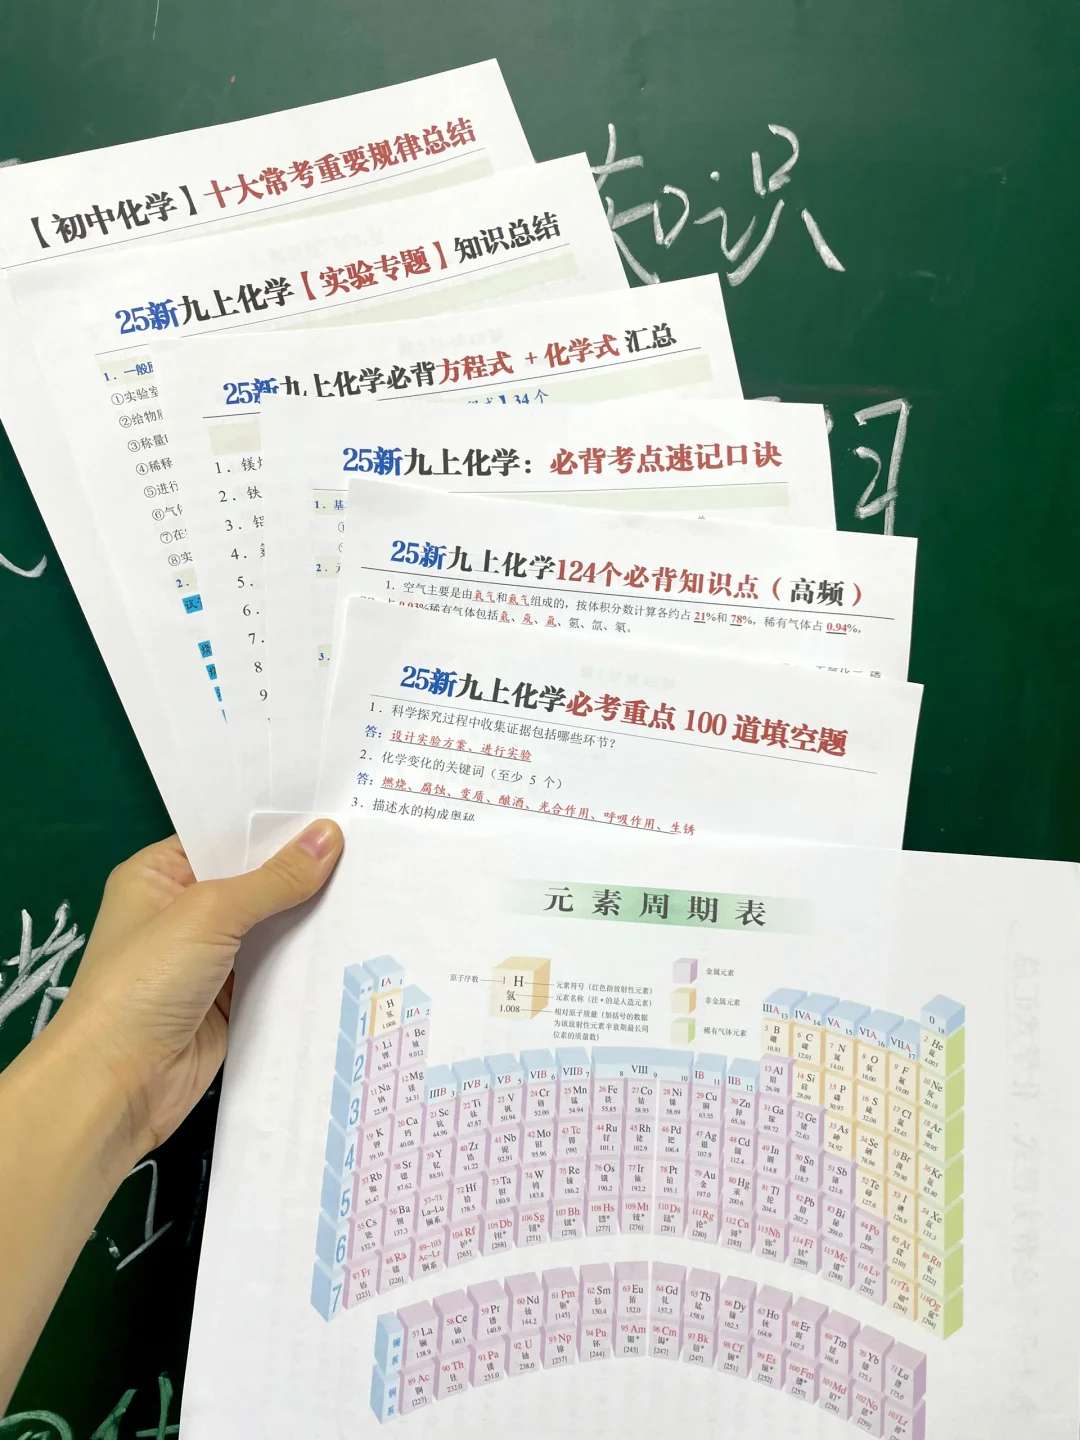 知识
【初中化学】十大常考重要规律总结
25新九上化学【实验专题】知识总结
1. 一般
①实验室
②给物
③称量
④稀释
⑤进行
⑥气
⑦在
⑧实
2.
25新九上化学必背方程式 + 化学式 汇总
34 个
1. 镁
2. 铁
3. 铝
4.
5.
6.
7.
8
9
25新九上化学：必背考点速记口诀
1. 基
2.
3.
25新九上化学124个必背知识点（高频）
1. 空气主要是由氧气和氮气组成的，按体积分数计算各约占 21%和 78%，稀有气体占 0.94%，
占 0.03%稀有气体包括氦、氖、氩、氪、氙、氡。
25新九上化学必考重点 100 道填空题
1. 科学探究过程中收集证据包括哪些环节？
答：设计实验方案、进行实验
2. 化学变化的关键词（至少 5 个）
答：燃烧、腐蚀、变质、酿酒、光合作用、呼吸作用、生锈
3. 描述水的构成奥秘
元素周期表
原子序数
1 H
氢
1.008
元素符号（红色指放射性元素）
元素名称（注 * 的是人造元素）
相对原子质量（加括号的数据
为该放射性元素半衰期最长同
位素的质量数）
金属元素
非金属元素
稀有气体元素
IA 1
IIA 2
IIIB 3 IVB 4 VB 5 VIB 6 VIIB 7 8 VIII 9 10 IB 11 IIB 12
IIIA 13 IVA 14 VA 15 VIA 16 VIIA 17 0 18
1 1 H 氢 1.008 2 He 氦 4.003
2 3 Li 锂 6.941 4 Be 铍 9.012 5 B 硼 10.81 6 C 碳 12.01 7 N 氮 14.01 8 O 氧 16.00 9 F 氟 19.00 10 Ne 氖 20.18
3 11 Na 钠 22.99 12 Mg 镁 24.31 13 Al 铝 26.98 14 Si 硅 28.09 15 P 磷 30.97 16 S 硫 32.06 17 Cl 氯 35.45 18 Ar 氩 39.95
4 19 K 钾 39.10 20 Ca 钙 40.08 21 Sc 钪 44.96 22 Ti 钛 47.87 23 V 钒 50.94 24 Cr 铬 52.00 25 Mn 锰 54.94 26 Fe 铁 55.85 27 Co 钴 58.93 28 Ni 镍 58.69 29 Cu 铜 63.55 30 Zn 锌 65.38 31 Ga 镓 69.72 32 Ge 锗 72.63 33 As 砷 74.92 34 Se 硒 78.96 35 Br 溴 79.90 36 Kr 氪 83.80
5 37 Rb 铷 85.47 38 Sr 锶 87.62 39 Y 钇 88.91 40 Zr 锆 91.22 41 Nb 铌 92.91 42 Mo 钼 95.96 43 Tc 锝 [98] 44 Ru 钌 101.1 45 Rh 铑 102.9 46 Pd 钯 106.4 47 Ag 银 107.9 48 Cd 镉 112.4 49 In 铟 114.8 50 Sn 锡 118.7 51 Sb 锑 121.8 52 Te 碲 127.6 53 I 碘 126.9 54 Xe 氙 131.3
6 55 Cs 铯 132.9 56 Ba 钡 137.3 57–71 La–Lu 镧系 72 Hf 铪 178.5 73 Ta 钽 180.9 74 W 钨 183.8 75 Re 铼 186.2 76 Os 锇 190.2 77 Ir 铱 192.2 78 Pt 铂 195.1 79 Au 金 197.0 80 Hg 汞 200.6 81 Tl 铊 204.4 82 Pb 铅 207.2 83 Bi 铋 209.0 84 Po 钋 [209] 85 At 砹 [210] 86 Rn 氡 [222]
7 87 Fr 钫 [223] 88 Ra 镭 [226] 89–103 Ac–Lr 锕系 104 Rf [265] 105 Db [268] 106 Sg [271] 107 Bh [270] 108 Hs [277] 109 Mt [276] 110 Ds [281] 111 Rg [280] 112 Cn [285] 113 Nh [284] 114 Fl [289] 115 Mc [288] 116 Lv [293] 117 Ts [294] 118 Og [294]
镧系 57 La 镧 138.9 58 Ce 铈 140.1 59 Pr 镨 140.9 60 Nd 钕 144.2 61 Pm 钷* [145] 62 Sm 钐 150.4 63 Eu 铕 152.0 64 Gd 钆 157.3 65 Tb 铽 158.9 66 Dy 镝 162.5 67 Ho 钬 164.9 68 Er 铒 167.3 69 Tm 铥 168.9 70 Yb 镱 173.1 71 Lu 镥 175.0
锕系 89 Ac 锕 [227] 90 Th 钍 232.0 91 Pa 镤 231.0 92 U 铀 238.0 93 Np 镎 [237] 94 Pu 钚 [244] 95 Am 镅* [243] 96 Cm 锔* [247] 97 Bk 锫* [247] 98 Cf 锎* [251] 99 Es 锿* [252] 100 Fm 镄* [257] 101 Md 钔* [258] 102 No 锘* [259] 103 Lr